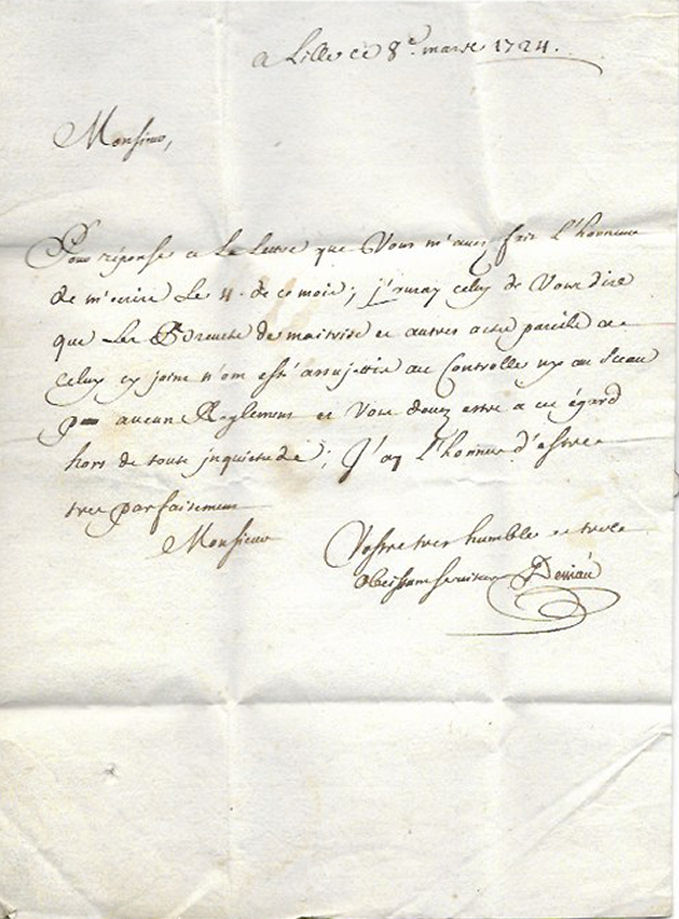 a Lille ce 8e. mars 1724.
Monsieur,
Pour réponse a la Lettre que Vous m'avez fait l'honneur
de m'ecrire Le 4. de ce mois; j'auray celuy de Vous dire
que Les Brevets de maitrise et autres actes pareils a
celuy cy joint n'ont esté assujettis au Controlle ny au sceau
par aucun Reglement et Vous devez estre a cet égard
hors de toute inquietude; J'ay l'honneur d'estre
tres parfaitement
Monsieur
Vostre tres humble et tres
obeissant serviteur